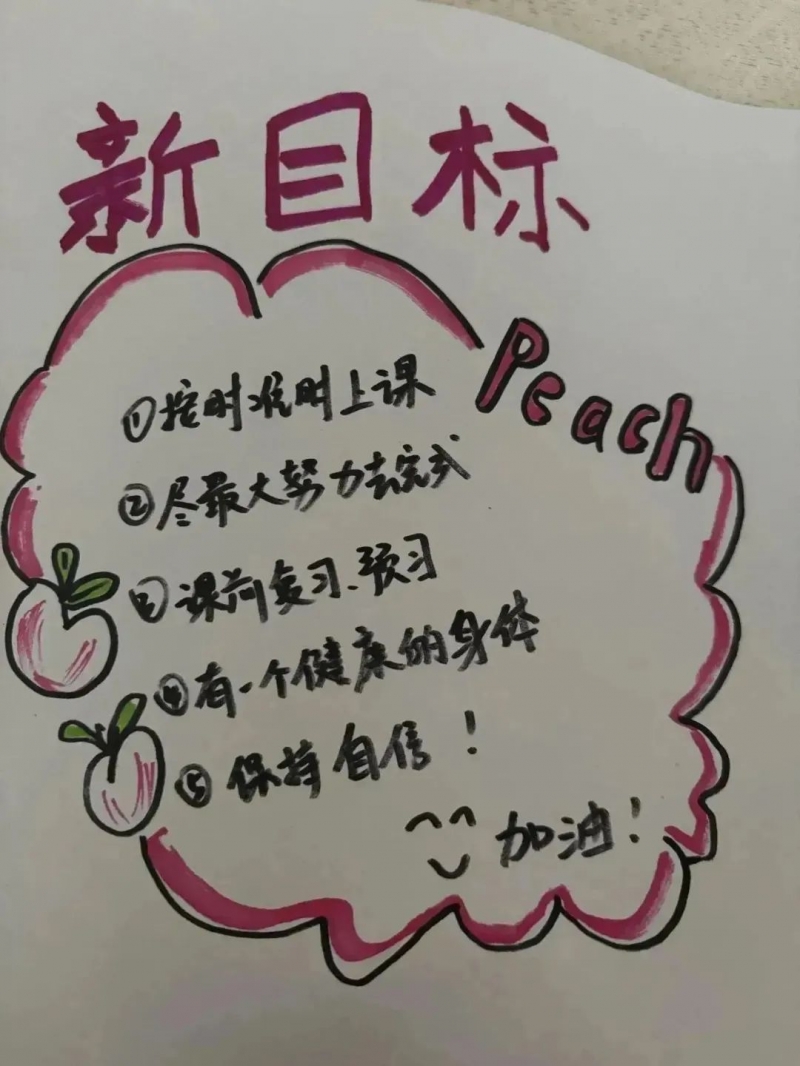 新目标
Peach
①按时准时上课
②尽最大努力去完成
③课前复习、预习
④有一个健康的身体
⑤保持自信！
加油！